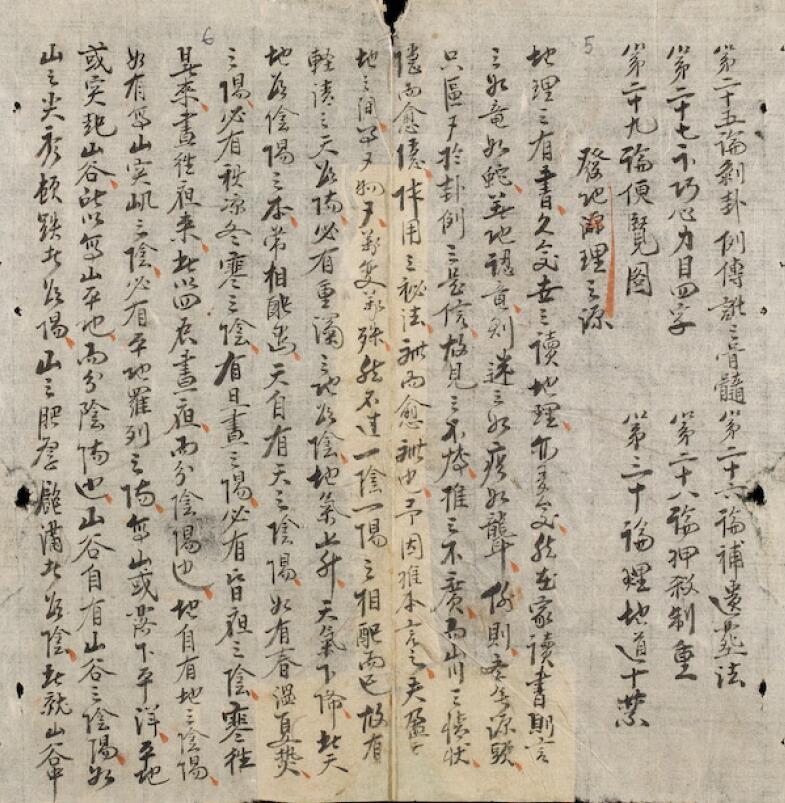 第二十五論剝卦例傳訛之骨髓 第二十六論補遺葬法
第二十七卜巧心力目四字 第二十八論押殺制重
第二十九論便覽图 第三十論理地道十業
發地淵理之源
地理之有書久矣世之讀地理亦多矣然在家讀書則言
之如竜如蛇葬地認竜則迷之如痴如聾何則盖無源頭
只區区於卦例之是信故見之不㷛推之不廣而山川之情狀
隱而愈隱作用之秘法秘而愈秘也予因推本言之夫盈乎
地之間万物万类变万殊然不过一陰一陽之相配而已故有
軽清之天為陽必有重濁之地為陰地氣上升天氣下降此天
地為陰陽之本常相配也天自有天之陰陽如有春温夏熱
之陽必有秋凉冬寒之陰有旦晝之陽必有昏夜之陰寒徃
暑來晝徃夜来此以四辰晝夜而分陰陽也地自有地之陰陽
如有高山突屼之陰必有平地羅列之陽高山或落下平洋平地
或突起山谷此以高山平地而分陰陽也山谷自有山谷之陰陽如
山之尖秀頓跌者為陽山之肥厚飽滿者為陰此就山谷中